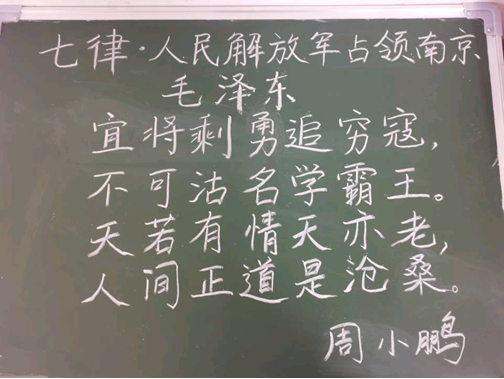 七律·人民解放军占领南京
毛泽东
宜将剩勇追穷寇,
不可沽名学霸王。
天若有情天亦老,
人间正道是沧桑。
周小鹏